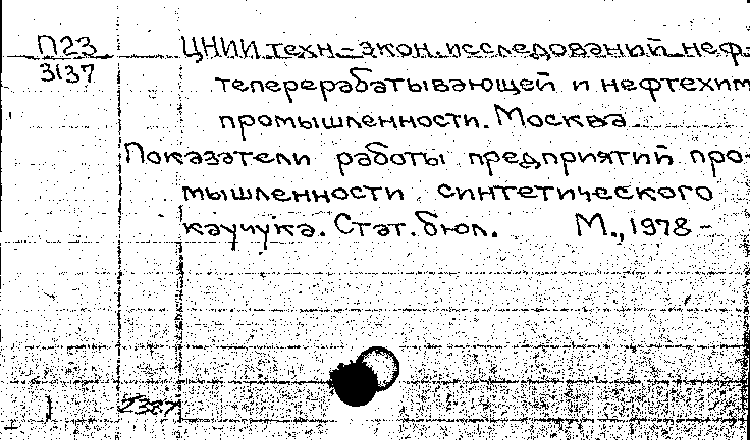 П23
3137
ЦНИИ техн.-экон. исследований неф-
теперерабатывающей и нефтехим
промышленности. Москва
Показатели работы предприятий про-
мышленности синтетического
каучука. Стат. бюл. М., 1978-
1 2387